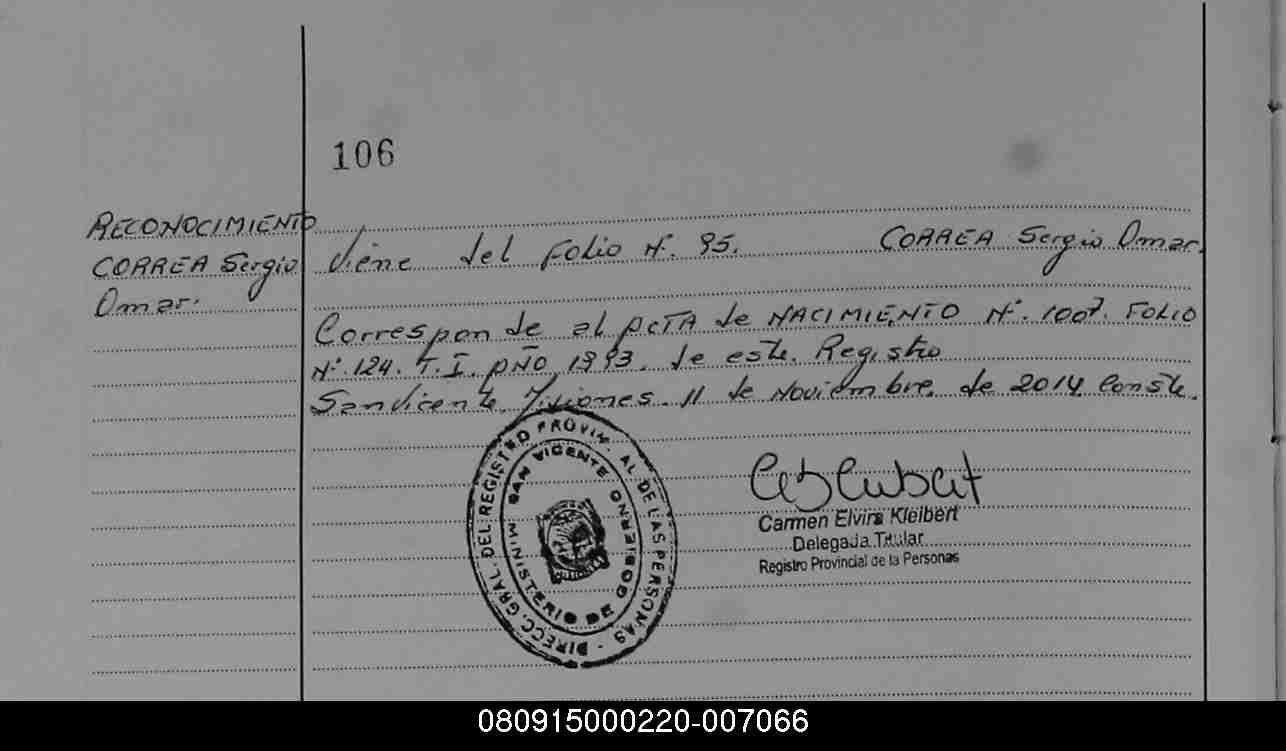 106
RECONOCIMIENTO
CORREA Sergio
Omar.
Viene del Folio N°. 95. CORREA Sergio Omar.
Corresponde al ACTA de NACIMIENTO N°. 1007. FOLIO
N°. 124. T. I. AÑO 1993. de este Registro
San Vicente, Misiones. 11 de Noviembre de 2014 Conste.
DIRECC. GRAL. DEL REGISTRO PROVIN. AL DE LAS PERSONAS
SAN VICENTE
MINISTERIO DE GOBIERNO
Carmen Elvira Kleibert
Delegada Titular
Registro Provincial de la Personas
080915000220-007066